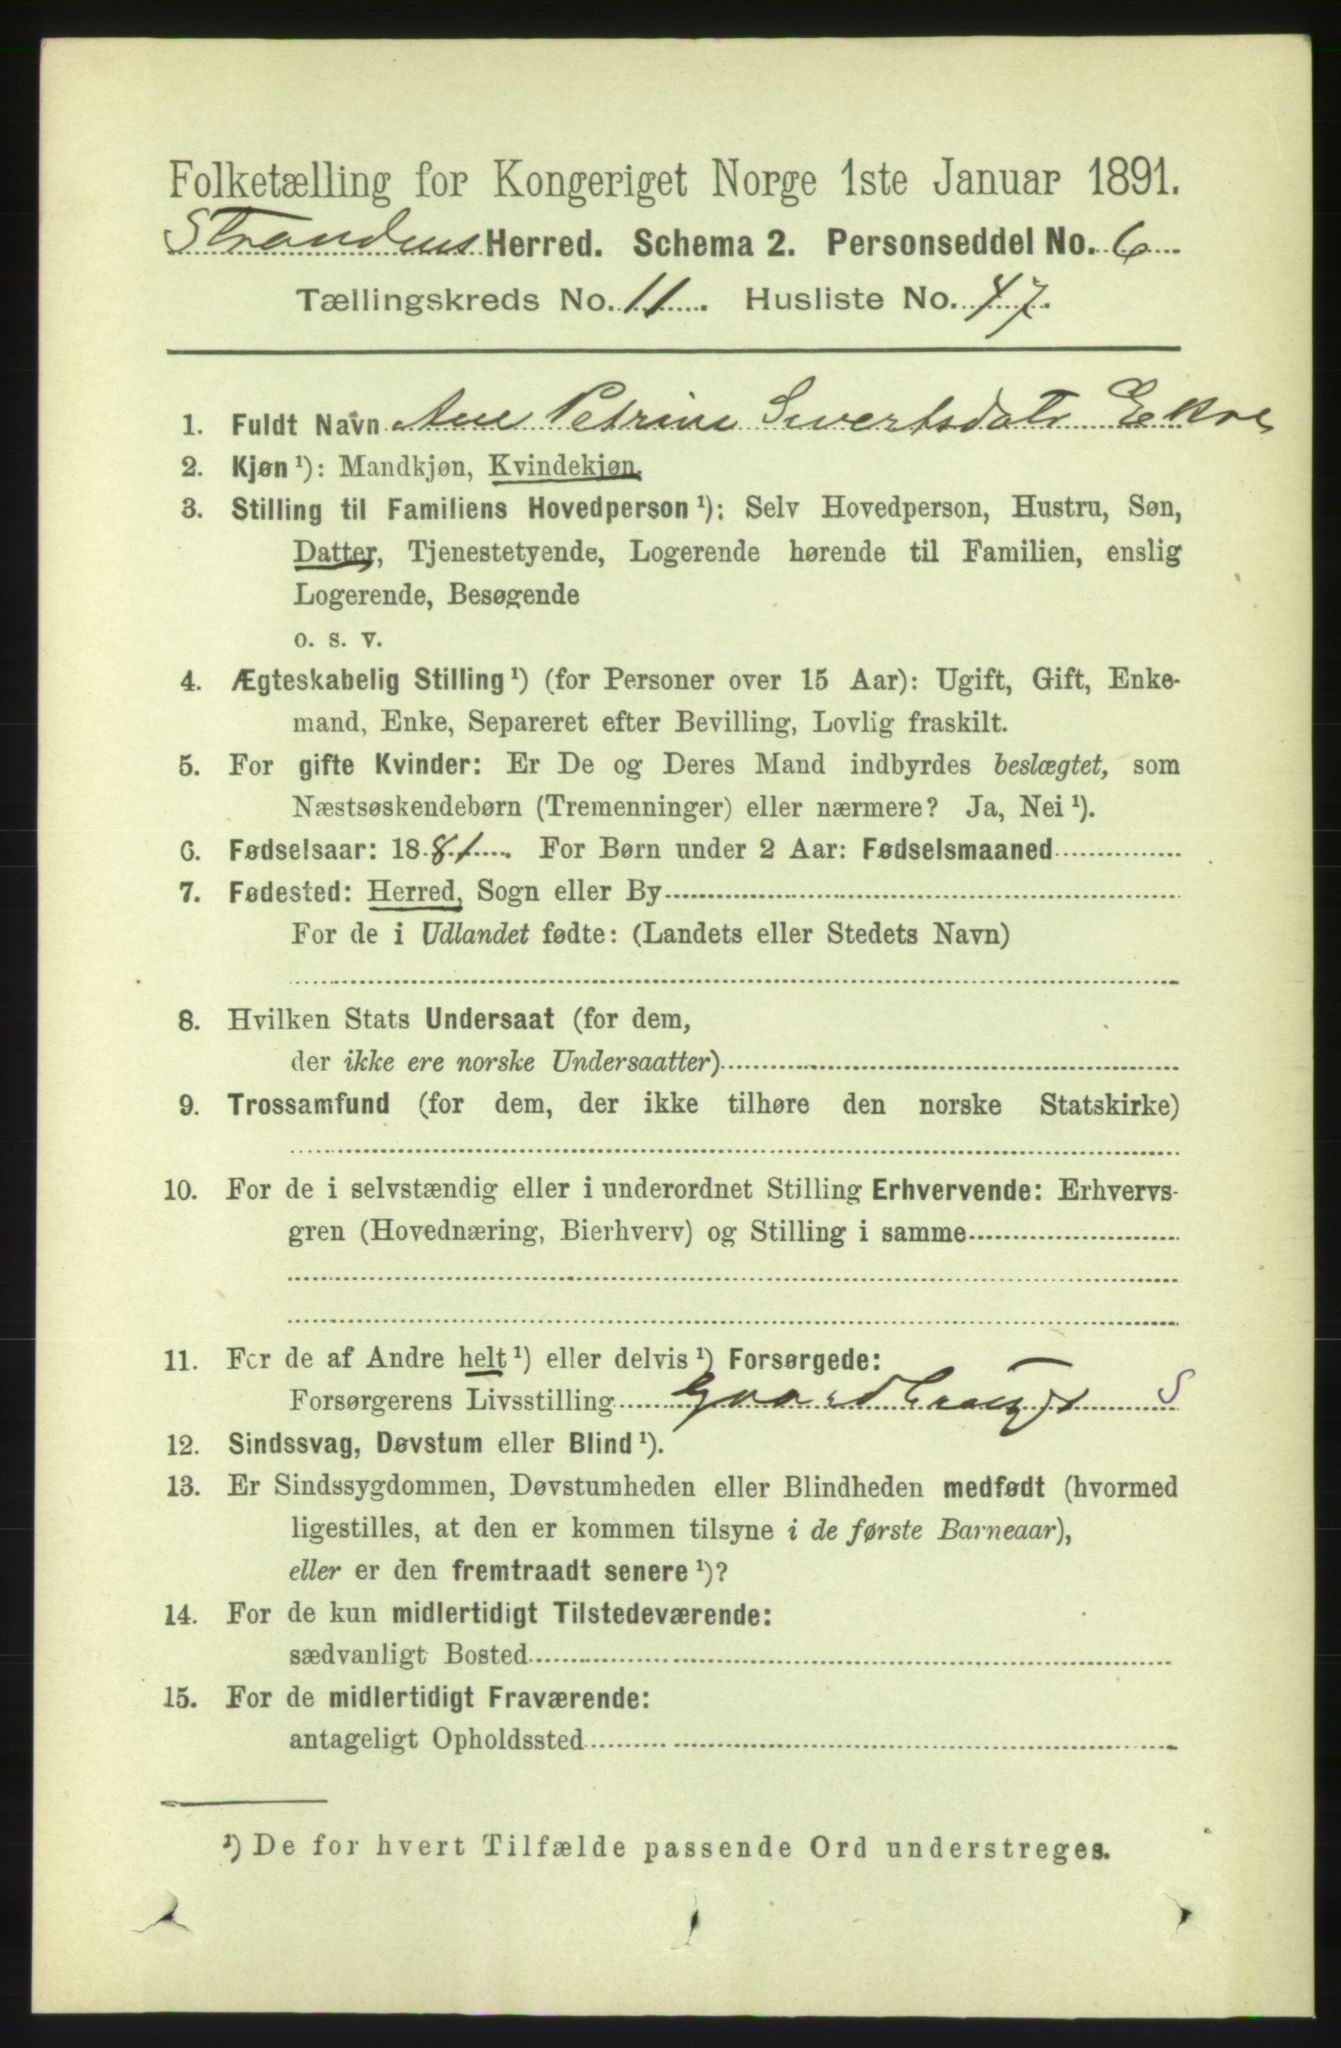 Folketælling for Kongeriget Norge 1ste Januar 1891.
Strandens Herred. Schema 2. Personseddel No. 6
Tællingskreds No. 11. Husliste No. 47.
1. Fuldt Navn Ane Petrine Sivertsdatr Ekroe
2. Kjøn ¹): Mandkjøn, Kvindekjøn.
3. Stilling til Familiens Hovedperson ¹): Selv Hovedperson, Hustru, Søn,
Datter, Tjenestetyende, Logerende hørende til Familien, enslig
Logerende, Besøgende
o. s. v.
4. Ægteskabelig Stilling ¹) (for Personer over 15 Aar): Ugift, Gift, Enke-
mand, Enke, Separeret efter Bevilling, Lovlig fraskilt.
5. For gifte Kvinder: Er De og Deres Mand indbyrdes beslægtet, som
Næstsøskendebørn (Tremenninger) eller nærmere? Ja, Nei ¹).
6. Fødselsaar: 1881. For Børn under 2 Aar: Fødselsmaaned
7. Fødested: Herred, Sogn eller By
For de i Udlandet fødte: (Landets eller Stedets Navn)
8. Hvilken Stats Undersaat (for dem,
der ikke ere norske Undersaatter)
9. Trossamfund (for dem, der ikke tilhøre den norske Statskirke)
10. For de i selvstændig eller i underordnet Stilling Erhvervende: Erhvervs-
gren (Hovednæring, Bierhverv) og Stilling i samme
11. For de af Andre helt ¹) eller delvis ¹) Forsørgede:
Forsørgerens Livsstilling Gaardbruger S
12. Sindssvag, Døvstum eller Blind ¹).
13. Er Sindssygdommen, Døvstumheden eller Blindheden medfødt (hvormed
ligestilles, at den er kommen tilsyne i de første Barneaar),
eller er den fremtraadt senere ¹)?
14. For de kun midlertidigt Tilstedeværende:
sædvanligt Bosted
15. For de midlertidigt Fraværende:
antageligt Opholdssted
¹) De for hvert Tilfælde passende Ord understreges.